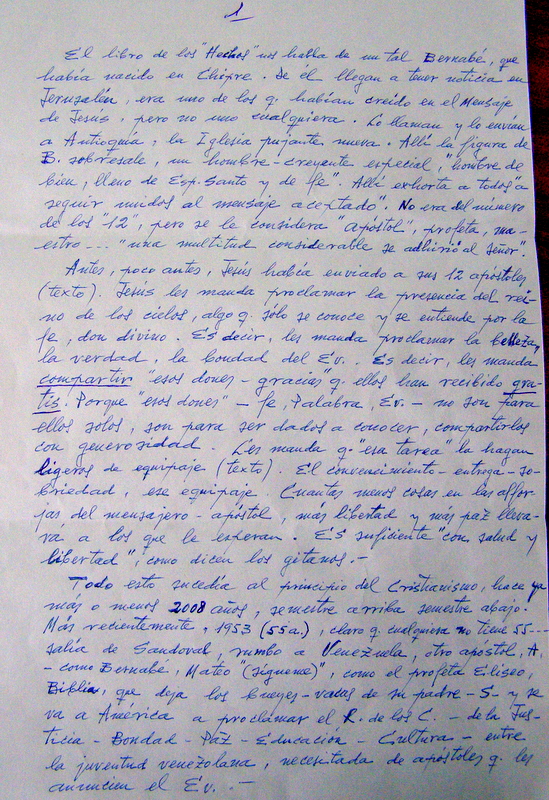 1
El libro de los "Hechos" nos habla de un tal Bernabé, que
había nacido en Chipre. De el llegan a tener noticia en
Jerusalén, era uno de los q. habían creído en el Mensaje
de Jesus, pero no uno cualquiera. Lo llaman y lo envían
a Antioquía; la Iglesia pujante nueva. Allí la figura de
B. sobresale, un hombre-creyente especial, "hombre de
bien, lleno de Esp. Santo y de fe". Allí exhorta a todos "a
seguir unidos al mensaje aceptado". No era del número
de los "12", pero se le considera "apóstol", profeta, ma-
estro--- "una multitud considerable se adhirió al Señor".
Antes, poco antes, Jesús había enviado a sus 12 apóstoles
(texto). Jesús les manda proclamar la presencia del rei-
no de los cielos, algo q. sólo se conoce y se entiende por la
fe, don divino. Es decir, les manda proclamar la belleza,
la verdad, la bondad del Ev.. Es decir, les manda
compartir "esos dones-gracias" q. ellos han recibido gra-
tis. Porque "esos dones" - fe, Palabra, Ev. - no son para
ellos solos, son para ser dados a conocer, compartirlos
con generosidad. Les manda q. "esa tarea" la hagan
ligeros de equipaje (texto). El convencimiento-entrega-so-
briedad, ese equipaje. Cuantas menos cosas en las alfor-
jas del mensajero-apóstol, más libertad y más paz lleva-
rá a los que le esperan. Es suficiente "con salud y
libertad", como dicen los gitanos.-
Todo esto sucedía al principio del Cristianismo, hace ya
más o menos 2008 años, semestre arriba semestre abajo.
Más recientemente, 1953 (55a.), claro q. cualquiera no tiene 55---
salía de Sandoval, rumbo a Venezuela, otro apóstol, A.
- como Bernabé, Mateo "(sígueme)", como el profeta Eliseo,
Biblia, que deja los bueyes-vacas de su padre - S- y se
va a América a proclamar el R. de los C. - de la Jus-
ticia - Bondad - Paz - Educación - Cultura - entre
la juventud venezolana, necesitada de apóstoles q. les
anuncien el Ev. .-